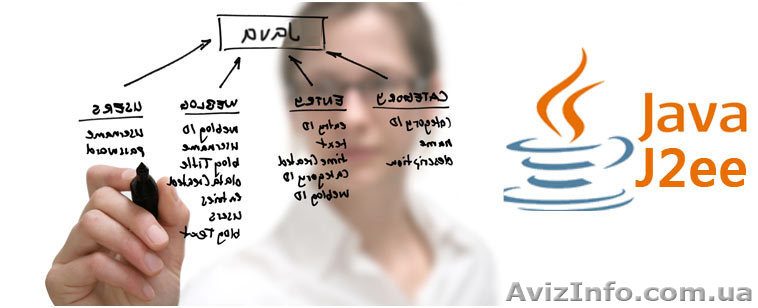 Java
USERS
username
password
WEBLOG
weblog ID
username
blog Title
dataCreated
Entries
users
blog Text
ENTRY
entry ID
text
timeCreated
Category ID
weblog ID
CATEGORY
Category ID
name
description
Java
J2ee
AvizInfo.com.ua